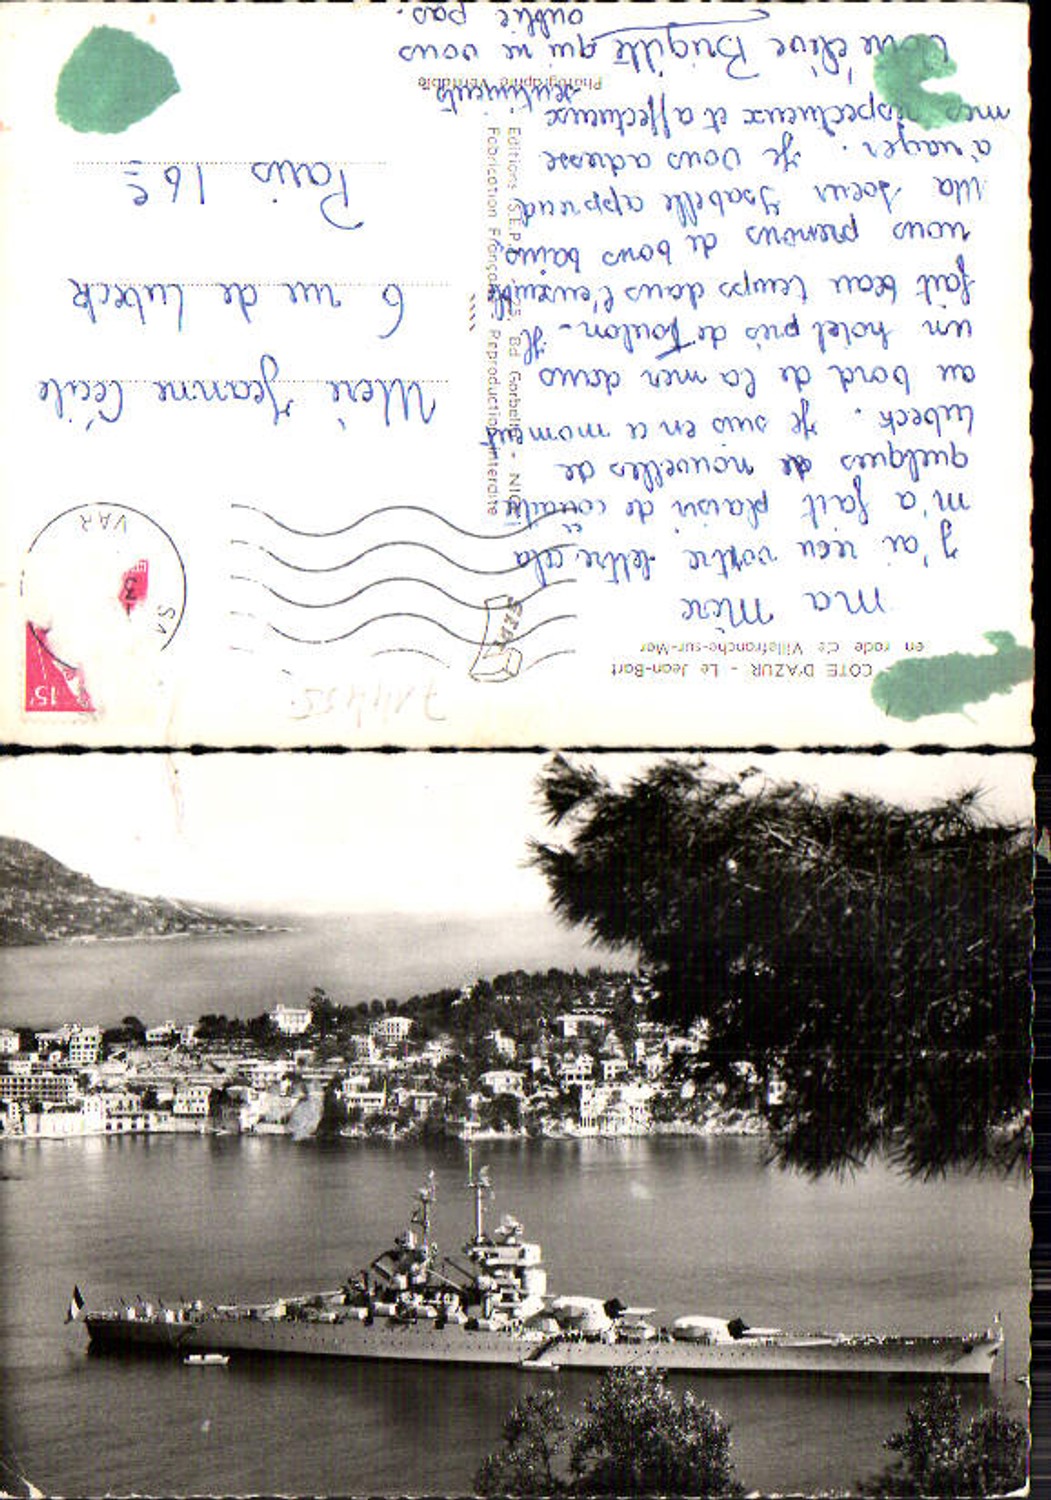 COTE D'AZUR - Le Jean-Bart
en rade de Villefranche-sur-Mer
Ma Mère
J'ai reçu votre lettre cela
m'a fait plaisir de connaître
quelques nouvelles de
Lubeck. Je suis en ce moment
au bord de la mer dans
un hôtel près de Toulon. Il
fait beau temps dans l'ensemble
nous prenons de bons bains
Ma soeur Isabelle apprend
à nager. Je vous adresse
mes respectueux et affectueux
sentiments
Votre élève Brigitte qui ne vous
oublie pas.
Editions S.E.P.T. Bd Gorbella - NICE
Fabrication Française Reproduction interdite
Photographie Véritable
15
VAR
Mère Jeanne Cécile
6 rue de Lubeck
Paris 16e